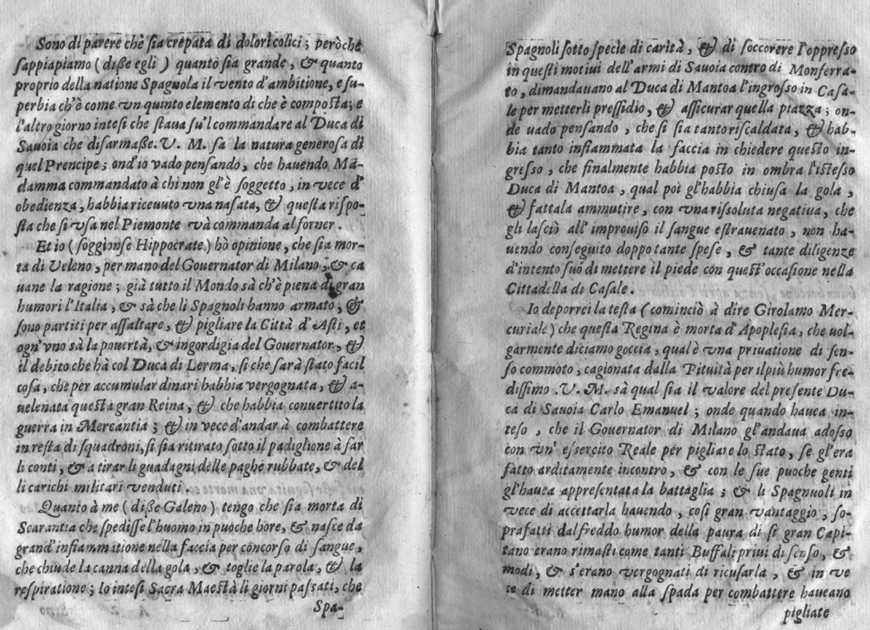 Sono di parere chè sia crepata di dolori colici; peròche
sappiapiamo (disse egli) quanto sia grande, & quanto
proprio della natione Spagnola il vento d'ambitione, e su-
perbia ch'è come vn quinto elemento di che è composta; e
l'altro giorno intesi che staua su'l commandare al Duca di
Sauoia che disarmasse. V. M. sa la natura generosa di
quel Prencipe; ond'io vado pensando, che hauendo Ma-
damma commandato à chi non gl'è soggetto, in vece d'
obedienza, habbia riceuuto vna nasata, & questa rispo-
sta che si vsa nel Piemonte và commanda al forner.
Et io (soggionse Hippocrate) hò opinione, che sia mor-
ta di Veleno, per mano del Gouernator di Milano; & ca
uane la ragione; già tutto il Mondo sà ch'è piena di gran
humori l'Italia, & sà che li Spagnoli hanno armato, &
sono partiti per assaltare, & pigliare la Città d'Asti, et
ogn'vno sà la pouertà, & ingordigia del Gouernator, &
il debito che hà col Duca di Lerma, si che sarà stato facil
cosa, che per accumular dinari habbia vergognata, & a-
uelenata questa gran Reina, & che habbia conuertito la
guerra in Mercantia; & in vece d'andar à combattere
in resta di squadroni, si sia ritirato sotto il padiglione à far
li conti, & a tirar li guadagni delle paghe rubbate, & del
li carichi militari venduti.
Quanto à me (disse Galeno) tengo che sia morta di
Scarantia che spedisse l'huomo in puoche hore, & nasce da
grand'infiammatione nella faccia per concorso di sangue,
che chiude la canna della gola, & toglie la parola, & la
respiratione; Io intesi Sacra Maestà li giorni passati, che
Spa-
Spagnoli sotto specie di carità, & di soccorere l'oppresso
in questi motiui dell'armi di Sauoia contro di Monferra-
to, dimandauano al Duca di Mantoa l'ingrosso in Casa-
le per metterli pressidio, & assicurar quella piazza; on-
de uado pensando, che si sia tanto riscaldata, & hab-
bia tanto infiammata la faccia in chiedere questo in-
gresso, che finalmente habbia posto in ombra l'istesso
Duca di Mantoa, qual poi gl'habbia chiusa la gola,
& fattala ammutire, con vna rissoluta negatiua, che
gli lasciò all'improuiso il sangue estrauenato, non ha-
uendo conseguito doppo tante spese, & tante diligenze
d'intento suo di mettere il piede con quest'occasione nella
Cittadella di Casale.
Io deporrei la testa (cominciò à dire Girolamo Mer-
curiale) che questa Regina è morta d'Apoplesia, che uol-
garmente diciamo goccia, qual è vna priuatione di sen-
so commoto, cagionata dalla Pituità per il più humor fre-
dissimo. V. M. sà qual sia il valore del presente Du-
ca di Sauoia Carlo Emanuel; onde quando hauea in-
teso, che il Gouernator di Milano gl'andaua adosso
con vn' essercito Reale per pigliare lo stato, se gl'era
fatto arditamente incontro, & con le sue puoche genti
gl'hauea appresentata la battaglia; & li Spagnuoli in
vece di accettarla hauendo, così gran vantaggio, so-
prafatti dal freddo humor della paura di sì gran Capi-
tano erano rimasti come tanti Buffali priui di senso, &
modi, & s'erano vergognati di ricusarla, & in ve
ce di metter mano alla spada per combattere haueano
pigliate